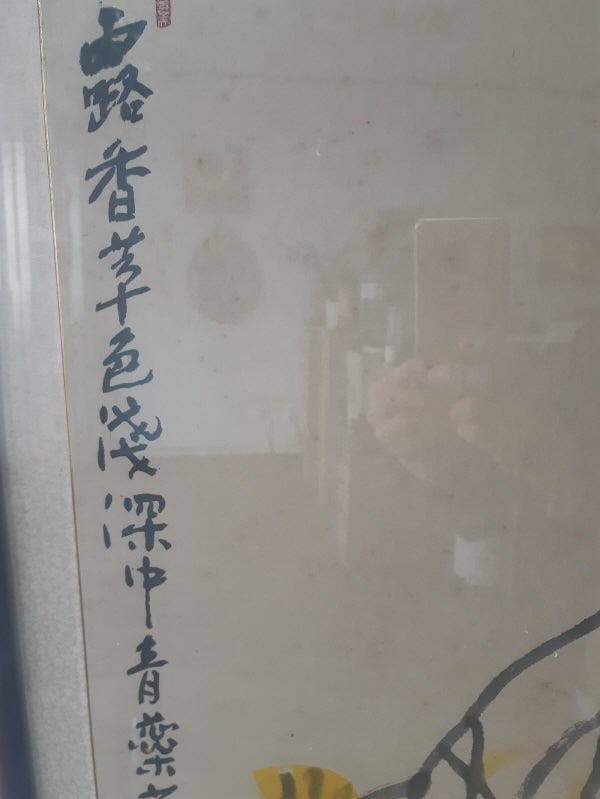 露香萼色淺深中青藥